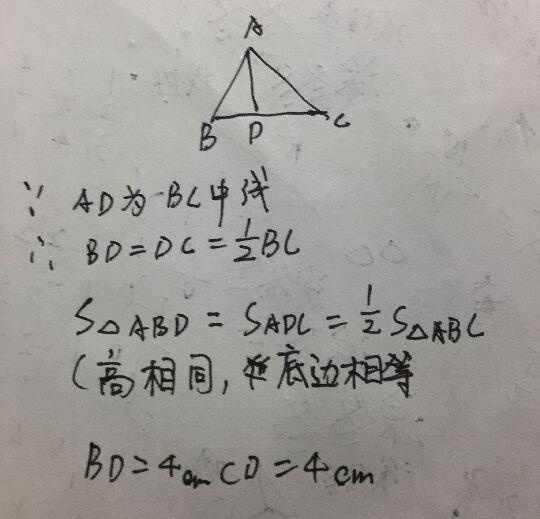 A
B D C
∵ AD为BC中线
∴ BD=DC=½BC
S△ABD=SADC=½S△ABC
(高相同,底边相等
BD=4cm CD=4cm